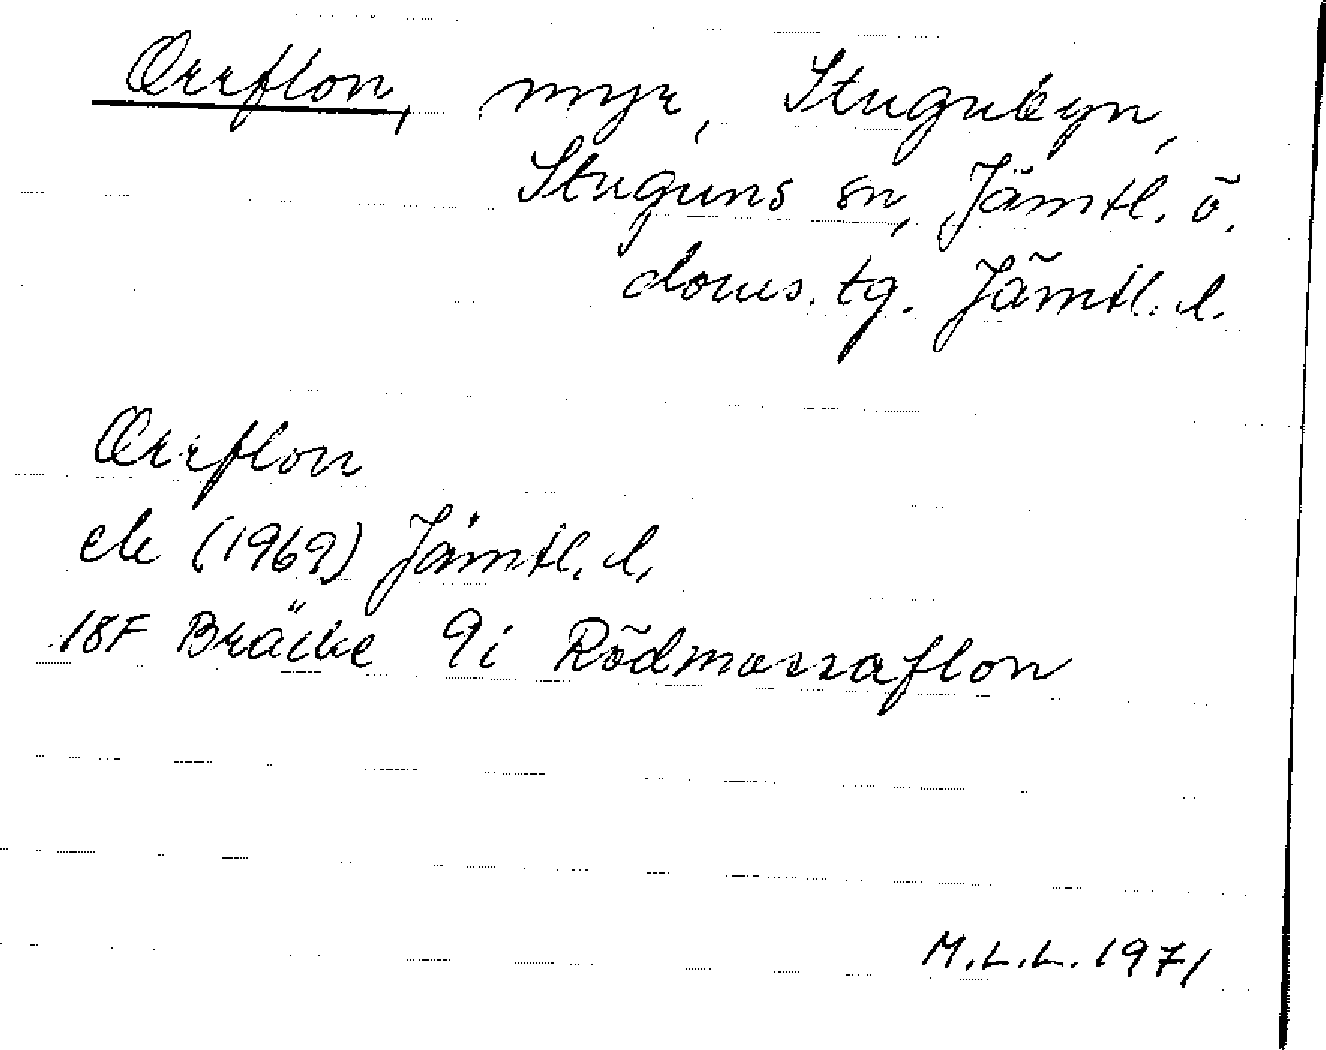 Orrflon, myr, Stugubyn,
Stuguns sn, Jämtl. ö.
doms. tg. Jämtl. l.
Orrflon
ek (1969) Jämtl. l.
18F Bräcke 9i Rödmossaflon
M.L.L. 1971